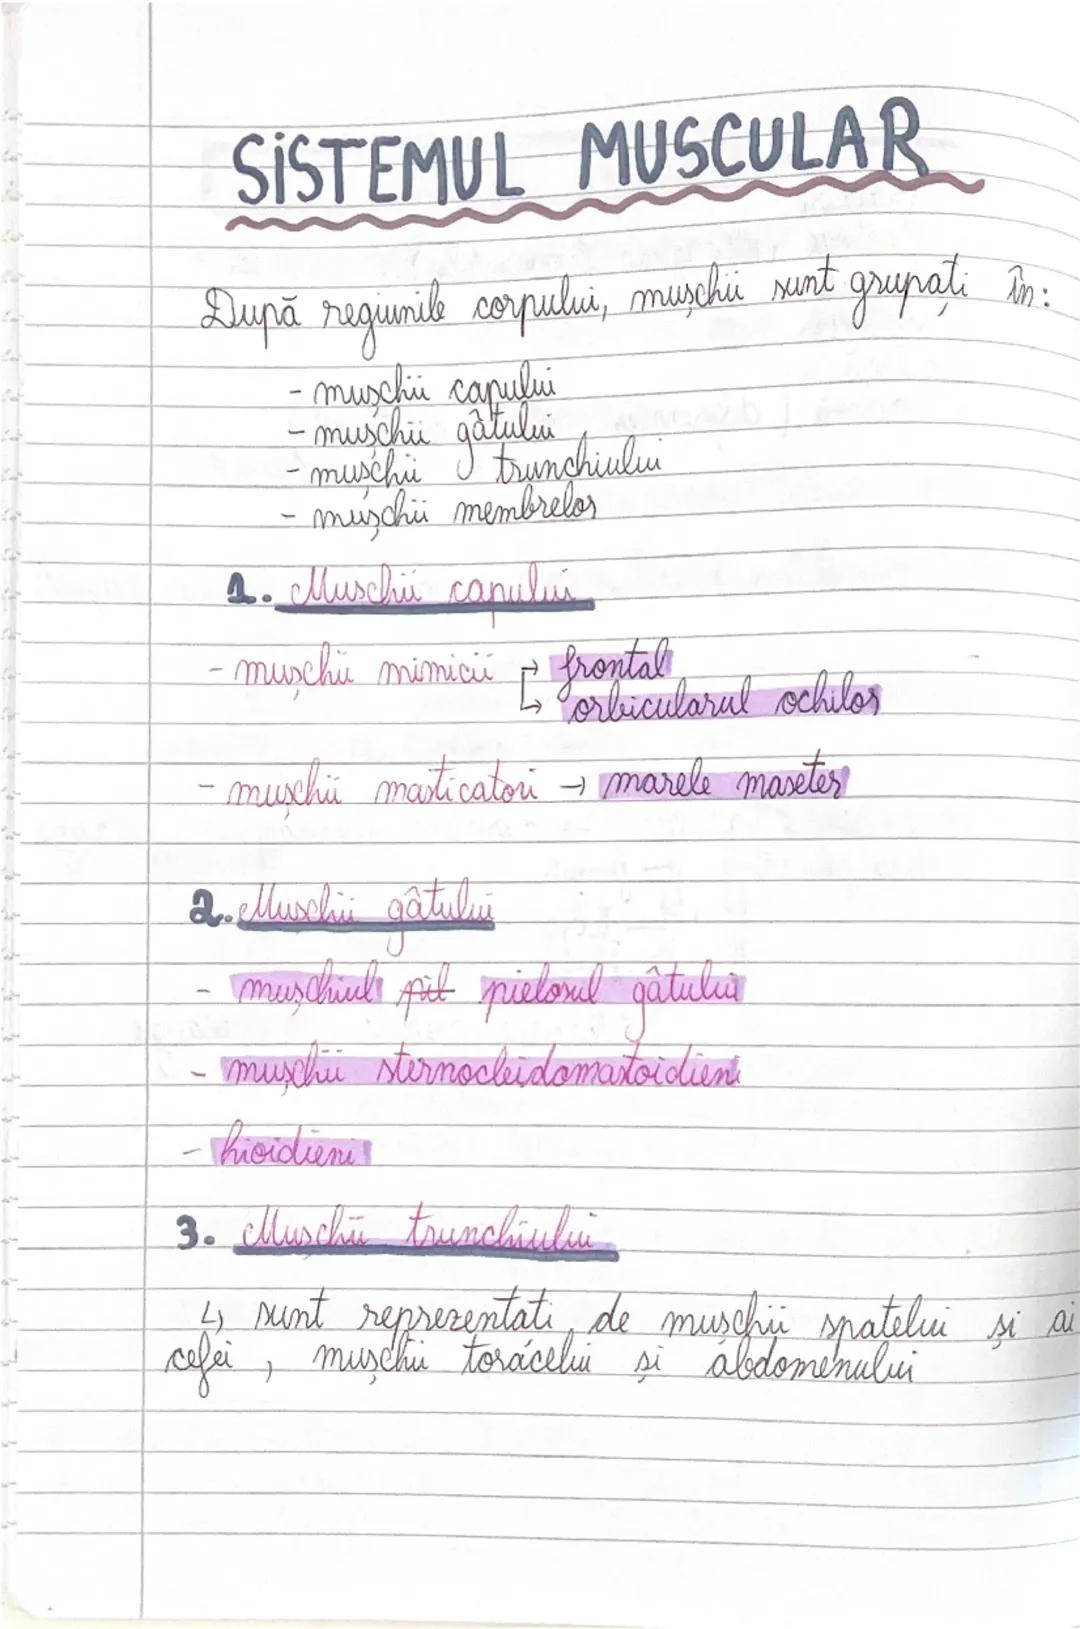 SiSTEMUL MUSCULAR
După regiunile corpului, mușchii sunt grupați în:
- mușchii capului
- mușchii gâtului
- mușchii trunchiului
- mușchii membrelor
1. Mușchii capului
- mușchii mimicii → frontal
↳ orbicularul ochilor
- mușchii masticatori → marele maseter
2. Mușchii gâtului
- mușchiul pil pielosul gâtului
- mușchii sternocleidomastoidieni
- hioidieni
3. Mușchii trunchiului
↳ sunt reprezentati de mușchii spatelui si ai
cefei, mușchii toracelui și abdomenului